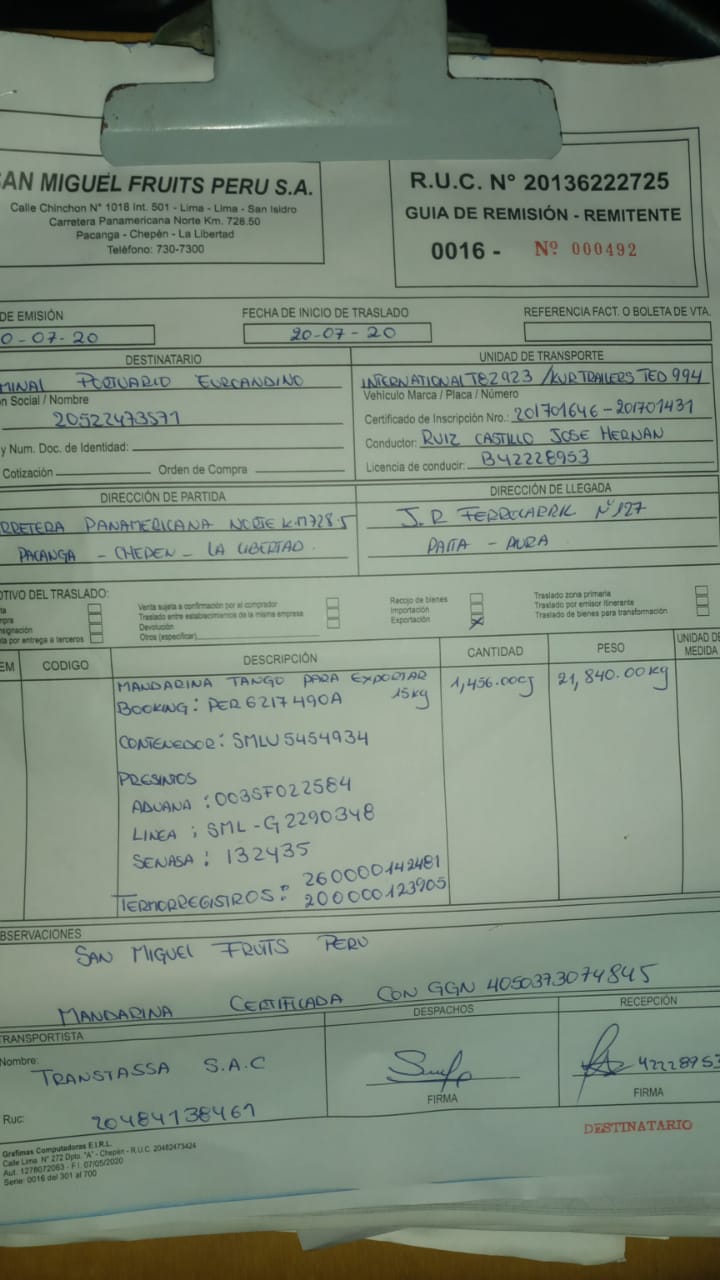 SAN MIGUEL FRUITS PERU S.A.
Calle Chinchon N° 1018 Int. 501 - Lima - Lima - San Isidro
Carretera Panamericana Norte Km. 728.50
Pacanga - Chepén - La Libertad
Teléfono: 730-7300
R.U.C. N° 20136222725
GUIA DE REMISIÓN - REMITENTE
0016 - Nº 000492
DE EMISIÓN
0-07-20
FECHA DE INICIO DE TRASLADO
20-07-20
REFERENCIA FACT. O BOLETA DE VTA.
DESTINATARIO
MINAL PORTUARIO EUROANDINO
n Social / Nombre
20522473571
y Num. Doc. de Identidad:
Cotización Orden de Compra
UNIDAD DE TRANSPORTE
INTERNATIONAL T8Z923 / KURTRAILERS TED 994
Vehículo Marca / Placa / Número
Certificado de Inscripción Nro.: 201701646 - 201701431
Conductor: RUIZ CASTILLO JOSE HERNAN
Licencia de conducir: B42228953
DIRECCIÓN DE PARTIDA
RRETERA PANAMERICANA NORTE K.M728.5
PACANGA - CHEPEN - LA LIBERTAD.
DIRECCIÓN DE LLEGADA
J.R FERROCARRIL Nº127
PAITA - PIURA
OTIVO DEL TRASLADO:
ta
mpra
nsignación
ta por entrega a terceros
Venta sujeta a confirmación por el comprador
Traslado entre establecimientos de la misma empresa
Devolución
Otros (especificar)
Recojo de bienes
Importación
Exportación X
Traslado zona primaria
Traslado por emisor itinerante
Traslado de bienes para transformación
EM CODIGO DESCRIPCIÓN CANTIDAD PESO UNIDAD DE MEDIDA
MANDARINA TANGO PARA EXPORTAR 15kg 1,456.00cj 21,840.00kg
BOOKING: PER6217490A
CONTENEDOR: SMLU5454934
PRESINTOS
ADUANA: 003SF022584
LINEA: SML-G2290348
SENASA: 132435
TERMORREGISTROS: 260000142481
200000123905
BSERVACIONES
SAN MIGUEL FRUITS PERU
MANDARINA CERTIFICADA CON GGN 4050373074845
TRANSPORTISTA
Nombre: TRANSTASSA S.A.C
Ruc: 20484138461
DESPACHOS
FIRMA
RECEPCIÓN
42228953
FIRMA
DESTINATARIO
Grafimas Computadoras E.I.R.L.
Calle Lima N° 272 Dpto. "A" - Chepén - R.U.C. 20482473424
Aut. 1278072063 - F.I. 07/05/2020
Serie: 0016 del 301 al 700